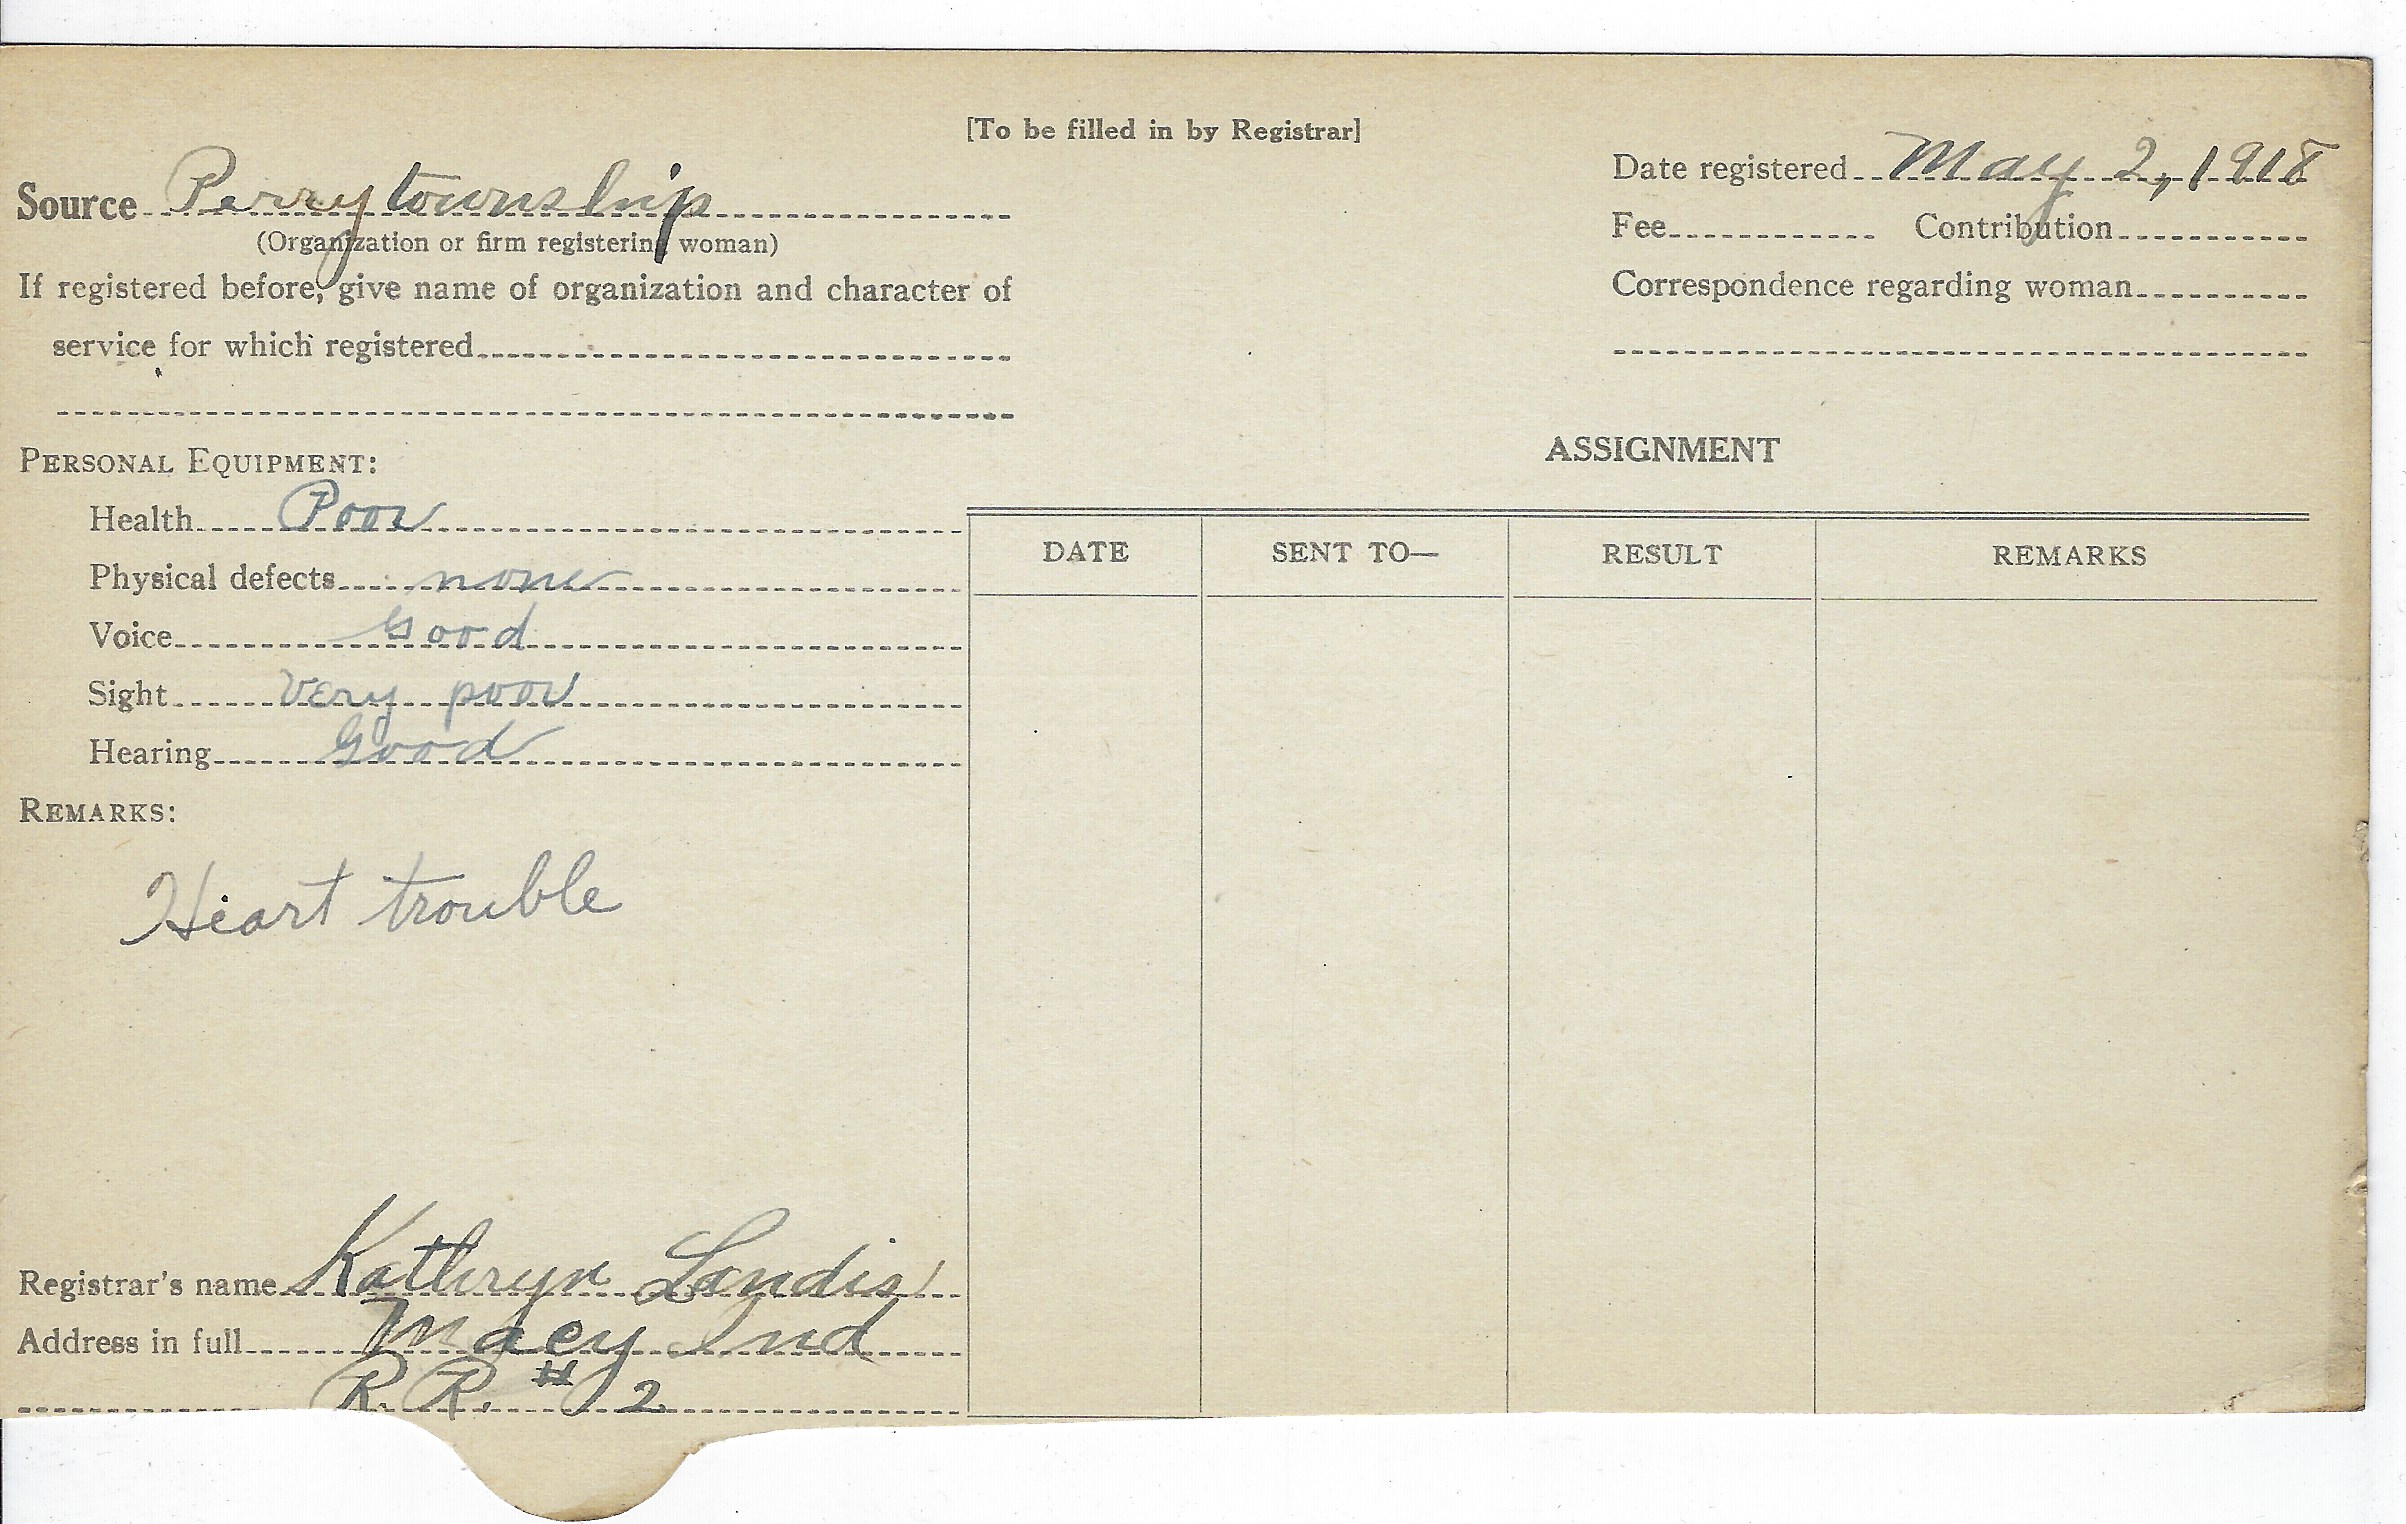 [To be filled in by Registrar]
Source Perry township
(Organization or firm registering woman)
If registered before, give name of organization and character of
service for which registered
Date registered May 2, 1918
Fee Contribution
Correspondence regarding woman
PERSONAL EQUIPMENT:
Health Poor
Physical defects none
Voice Good
Sight Very poor
Hearing Good
REMARKS:
Heart trouble
Registrar's name Kathryn Landis
Address in full Macy Ind
R. R. # 2
ASSIGNMENT
DATE SENT TO— RESULT REMARKS